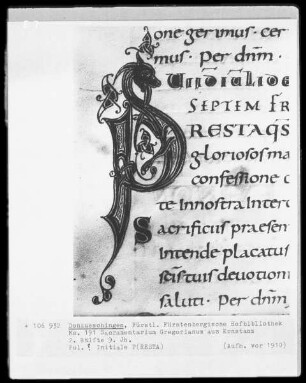 one gerimus · cer
mus · per dnm ·
SEPTEM FR
P RESTA QS
gloriosos ma
confessione c
te Innostra Interc
Sacrificiis praesen
Intende placatus
tuis deuotioni
saluti · Per dnm
+ 106 932 Donaueschingen, Fürstl. Fürstenbergische Hofbibliothek
Ms. 191 Sacramentarium Gregorianum aus Konstanz
2. Hälfte 9. Jh.
Initiale P(RESTA) (Aufn. vor 1910)